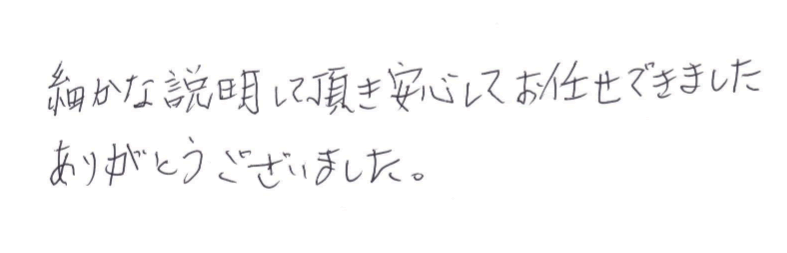 細かな説明して頂き安心してお任せできました
ありがとうございました。